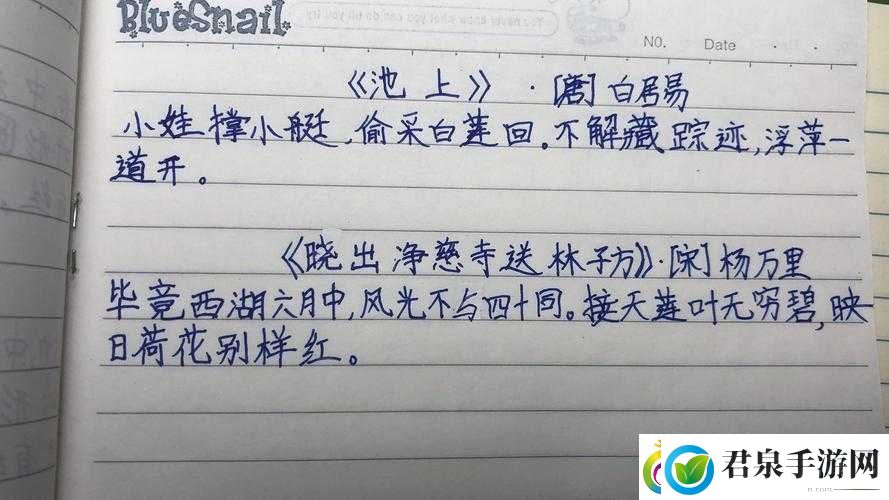 BlueSnail
You never know what you can do till you try
No. Date
《池上》·[唐]白居易
小娃撑小艇,偷采白莲回。不解藏踪迹,浮萍一
道开。
《晓出净慈寺送林子方》·[宋]杨万里
毕竟西湖六月中,风光不与四十同。接天莲叶无穷碧,映
日荷花别样红。
君泉手游网